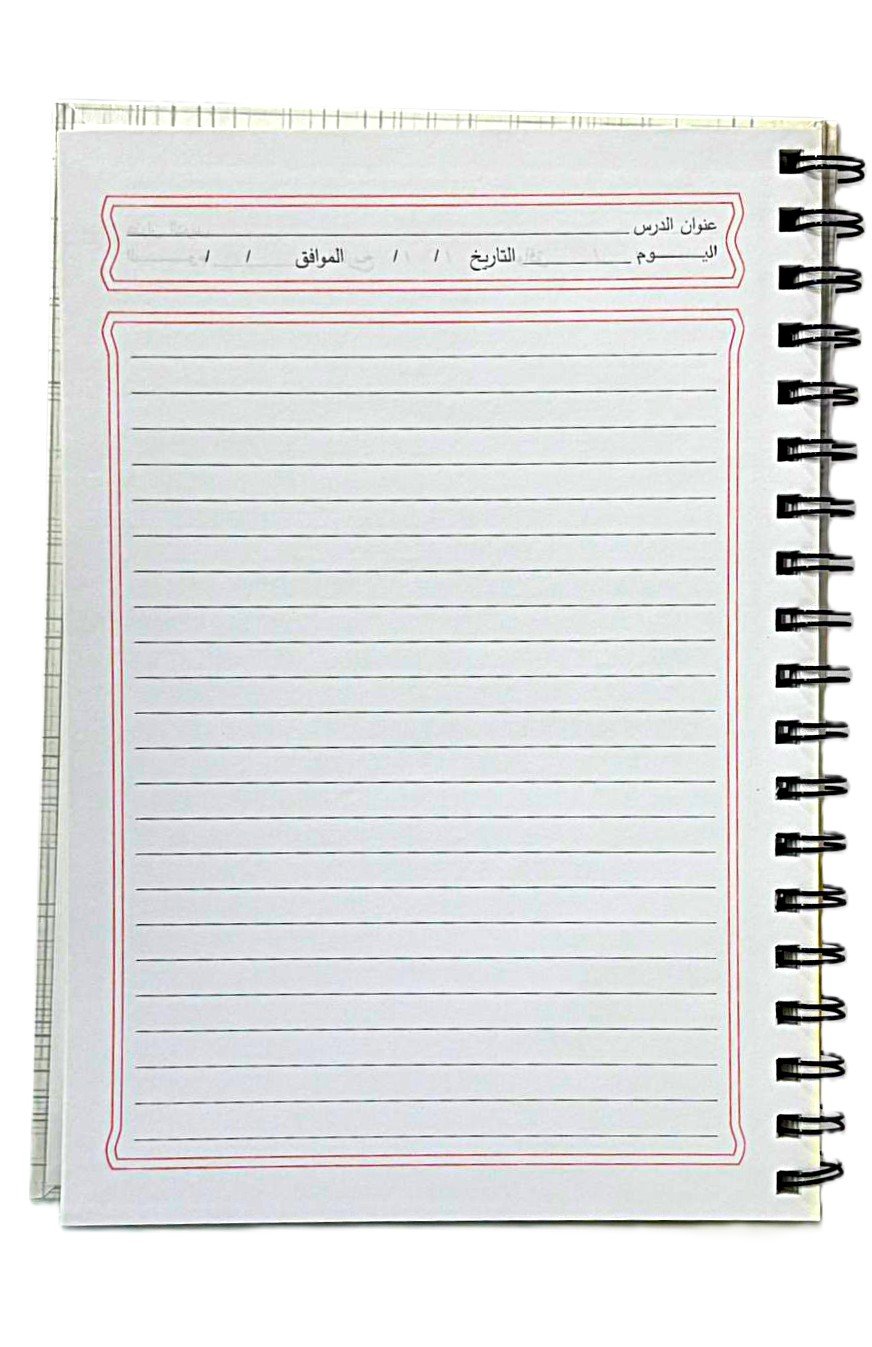 عنوان الدرس
اليـــــــوم التاريخ / / الموافق / /